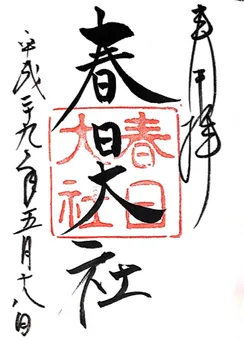 奉拝
春日大社
春日
大社
平成二十九年五月十八日